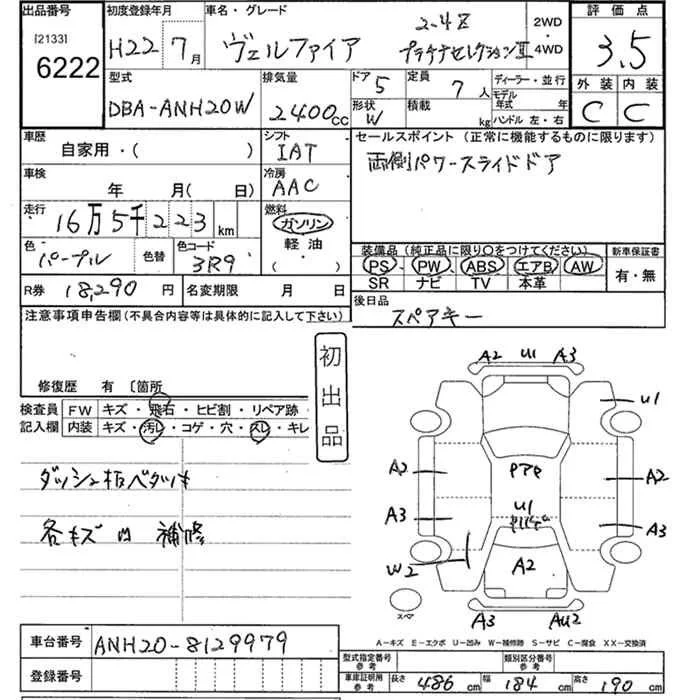 出品番号 初度登録年月 車名・グレード 評価点
[2133] 6222
H22 7月 ヴェルファイア 2-4Z プラチナセレクションⅡ 2WD・4WD
3.5
型式 排気量 ドア 5 定員 7人 ディーラー・並行 外装 内装
DBA-ANH20W 2400cc 形状 W 積載 kg モデル年式 年 ハンドル 左・右 C C
車歴 シフト セールスポイント(正常に機能するものに限ります)
自家用・( ) IAT 両側パワースライドドア
車検 冷房
年 月( 日) AAC
走行 燃料
16万5千223km ガソリン
色 色替 色コード 軽油
パープル 3R9 ( )
装備品(純正品に限り○をつけてください) 新車保証書
PS PW ABS エアB AW 有・無
SR ナビ TV 本革
R券 18,290円 名変期限 月 日
後日品
スペアキー
注意事項申告欄(不具合内容等は具体的に記入して下さい)
修復歴 有 〔箇所
初出品
検査員 FW キズ・飛石・ヒビ割・リペア跡
記入欄 内装 キズ・汚レ・コゲ・穴・スレ・キレ
各キズ凹 補修
A2 U1 A3
U1
A2 A2
U1
A3 A3
W2 A2
スペア
A3 AU2
A-キズ E-エクボ U-凹み W-補修跡 S-サビ C-腐食 XX-交換済
車台番号 ANH20-8129979
登録番号
型式指定番号参考 類別区分番号参考
車庫証明用参考 長さ 486cm 幅 184cm 高さ 190cm